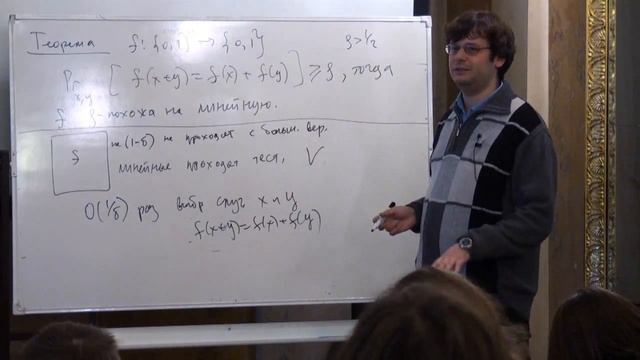 Теорема f: {0,1} → {0,1} ρ > 1/2
Pr x,y [ f(x+y) = f(x) + f(y) ] ≥ ρ, тогда
f ρ-похожа на линейную.
не (1-δ) не проходят с больш. вер.
f
линейные проходят тест, V
O(1/δ) раз выбр случ x и y
f(x+y) = f(x) + f(y)